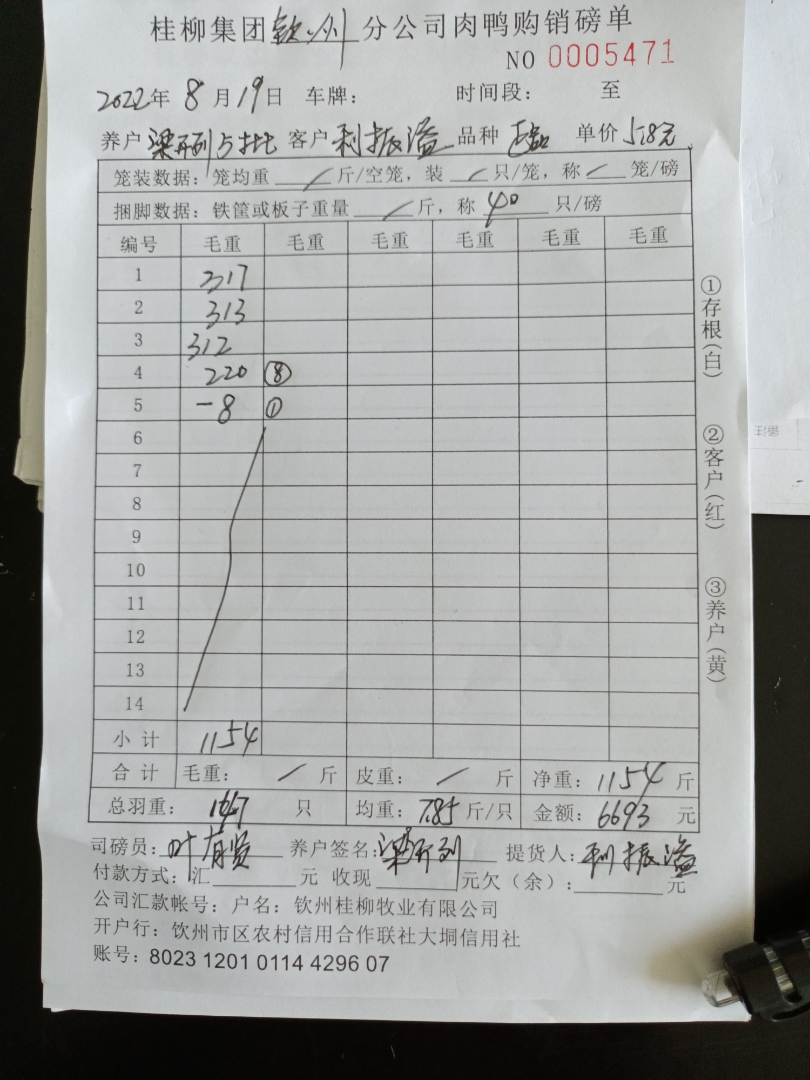 桂柳集团钦州分公司肉鸭购销磅单
NO 0005471
2022年 8月19日 车牌： 时间段： 至
养户 梁开列5批 客户 利振溢 品种 单价 5.8元
笼装数据：笼均重 / 斤/空笼，装 / 只/笼，称 / 笼/磅
捆脚数据：铁筐或板子重量 / 斤，称 40 只/磅
编号 毛重 毛重 毛重 毛重 毛重 毛重
1 317
2 313
3 312
4 220 ⑧
5 -8 ①
6
7
8
9
10
11
12
13
14
小计 1154
合计 毛重： / 斤 皮重： / 斤 净重：1154 斤
总羽重： 147 只 均重：7.85 斤/只 金额：6693 元
司磅员：叶有贤 养户签名：梁开列 提货人：利振溢
付款方式：汇 元 收现 元欠（余）： 元
公司汇款帐号：户名：钦州桂柳牧业有限公司
开户行：钦州市区农村信用合作联社大垌信用社
账号：8023 1201 0114 4296 07
①存根（白）
②客户（红）
③养户（黄）